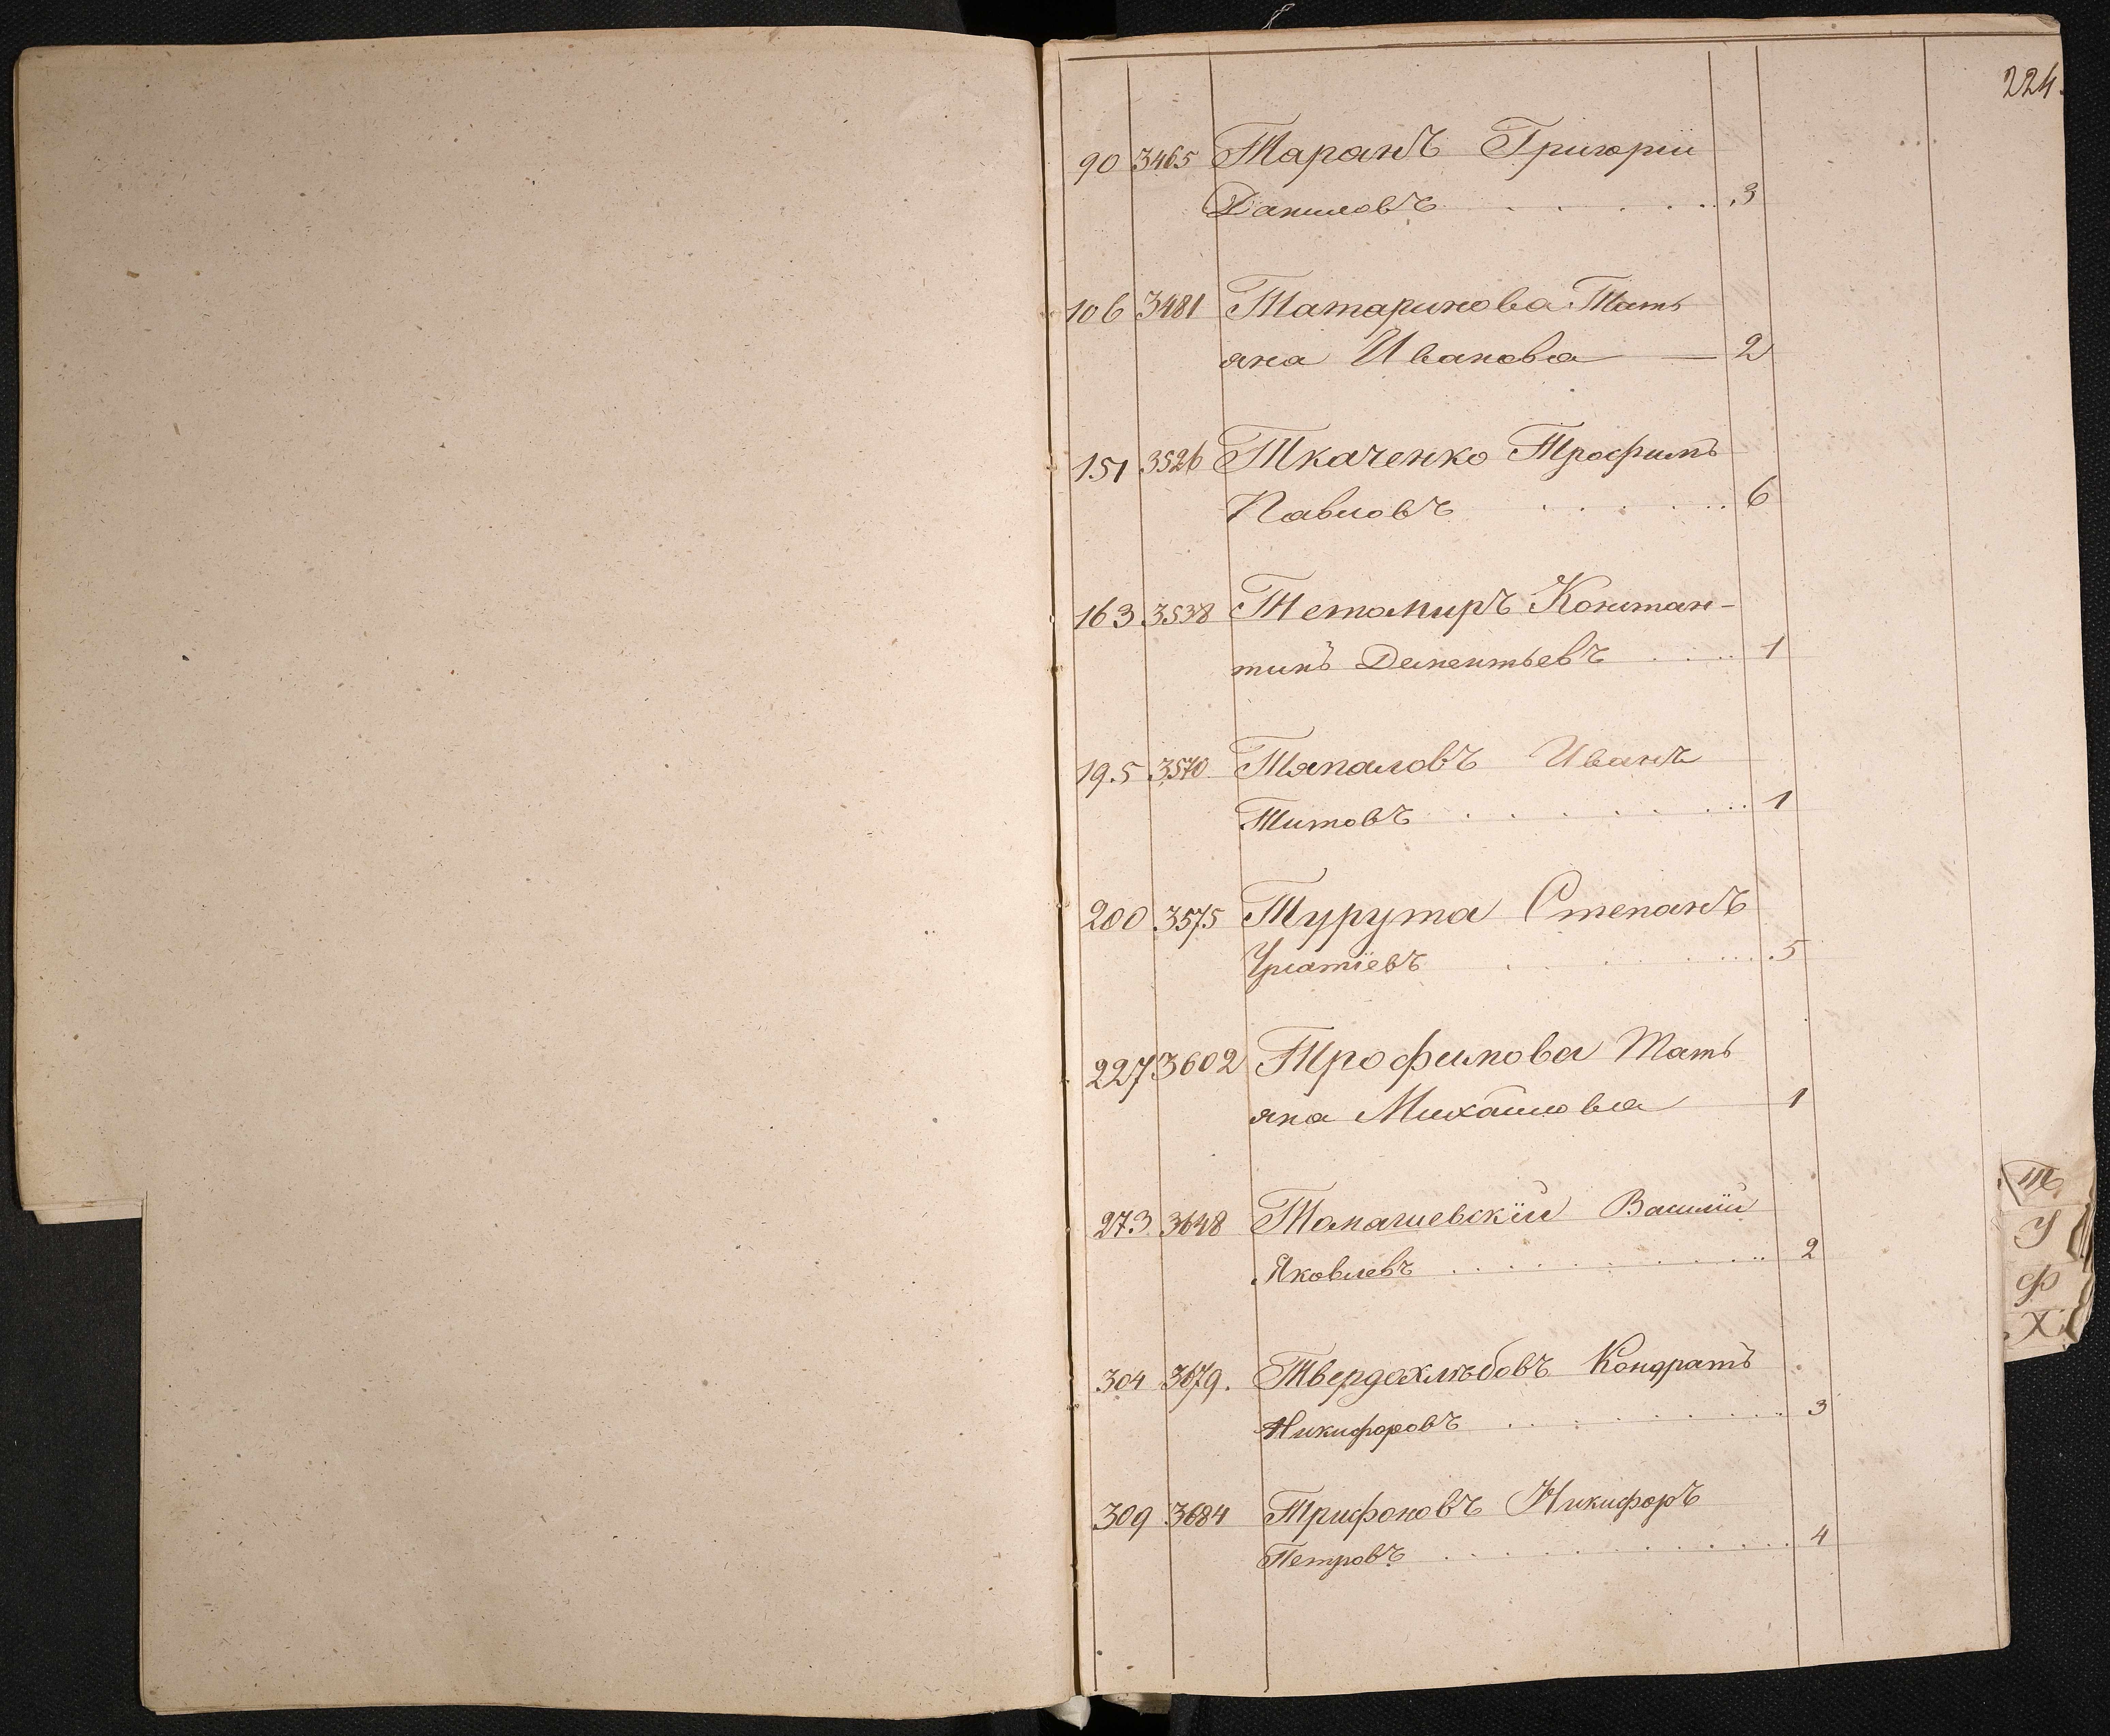 224.
90 3465 Таранъ Григорій
Даниловъ . . . . . . 3
106 3481 Татаринова Тать
яна Иванова — 2
151 3526 Ткаченко Трофимъ
Павловъ . . . . . . 6
163 3538 Тетомиръ Констан-
тинъ Дементьевъ . . . . 1
195 3570 Тяпаловъ Иванъ
Титовъ . . . . . . . . 1
200 3575 Турута Степанъ
Игнатіевъ . . . . . . . 5
227 3602 Трофимова Тать
яна Михайлова 1
273 3648 Томашевскій Василій
Яковлевъ . . . . . . . . . . 2
304 3679. Твердохлѣбовъ Кондратъ
Никифоровъ . . . . . . . . 3
309 3684 Трифоновъ Никифоръ
Петровъ . . . . . . . . . . 4
Т
У
Ф
Х